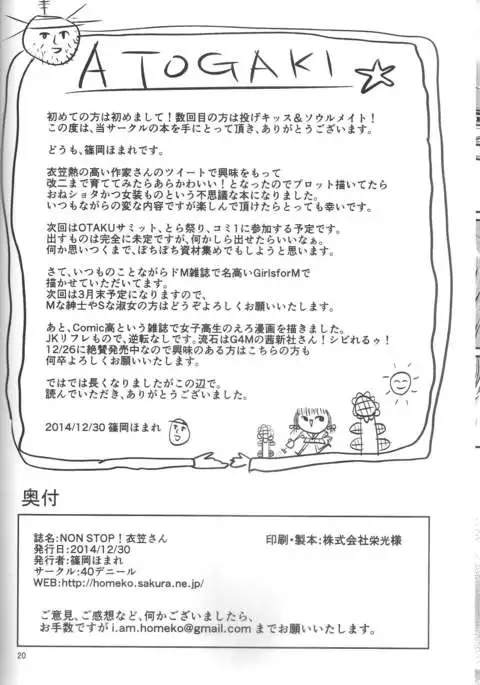 ATOGAKI
初めての方は初めまして！数回目の方は投げキッス＆ソウルメイト！
この度は、当サークルの本を手にとって頂き、ありがとうございます。
どうも、篠岡ほまれです。
衣笠熱の高い作家さんのツイートで興味をもって
改二まで育ててみたらあらかわいい！となったのでプロット描いてたら
おねショタかつ女装ものという不思議な本になりました。
いつもながらの変な内容ですが楽しんで頂けたらとっても幸いです。
次回はOTAKUサミット、とら祭り、コミ1に参加する予定です。
出すものは完全に未定ですが、何かしら出せたらいいなぁ。
何か思いつくまで、ぼちぼち資材集めでもしようと思います。
さて、いつものことながらドM雑誌で名高いGirlsforMで
描かせていただいてます。
次回は3月末予定になりますので、
Mな紳士やSな淑女の方はどうぞよろしくお願いいたします。
あと、Comic高という雑誌で女子高生のえろ漫画を描きました。
JKリフレもので、逆転なしです。流石はG4Mの茜新社さん！シビれるゥ！
12/26に絶賛発売中なので興味のある方はこちらの方も
何卒よろしくお願いいたします。
ではでは長くなりましたがこの辺で。
読んでいただき、ありがとうございました。
2014/12/30 篠岡ほまれ
奥付
誌名:NON STOP！衣笠さん
発行日:2014/12/30
発行者:篠岡ほまれ
サークル:40デニール
WEB:http://homeko.sakura.ne.jp/
印刷・製本:株式会社栄光様
ご意見、ご感想など、何かございましたら、
お手数ですが i.am.homeko@gmail.com までお願いいたします。
20